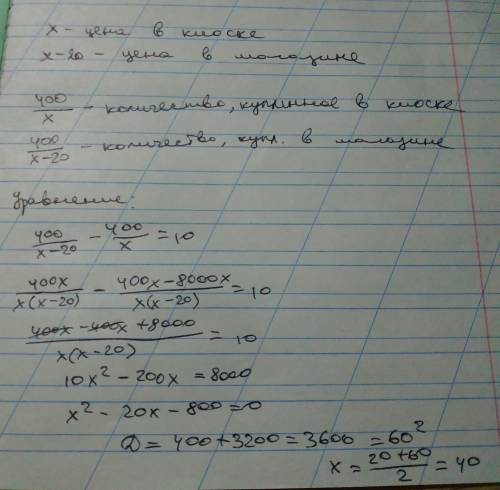 x - цена в киоске
x-20 - цена в магазине
400/x - количество, купленное в киоске
400/(x-20) - количество, купл. в магазине
Уравнение:
400/(x-20) - 400/x = 10
400x/(x(x-20)) - (400x-8000x)/(x(x-20)) = 10
(400x-400x+8000)/(x(x-20)) = 10
10x² - 200x = 8000
x² - 20x - 800 = 0
D = 400 + 3200 = 3600 = 60²
x = (20+60)/2 = 40